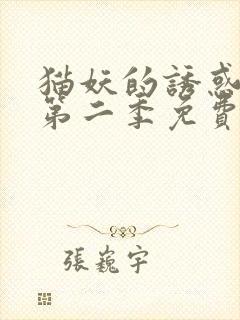 猫妖的誘惑
第二季免費
張巍宇